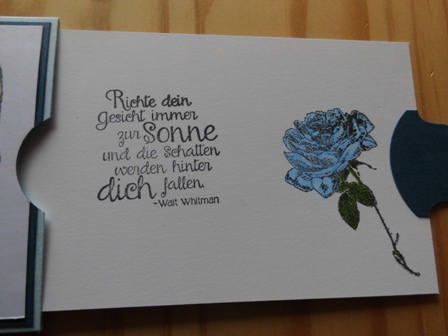 Richte dein
Gesicht immer
zur Sonne
und die Schatten
werden hinter
dich fallen.
-Walt Whitman